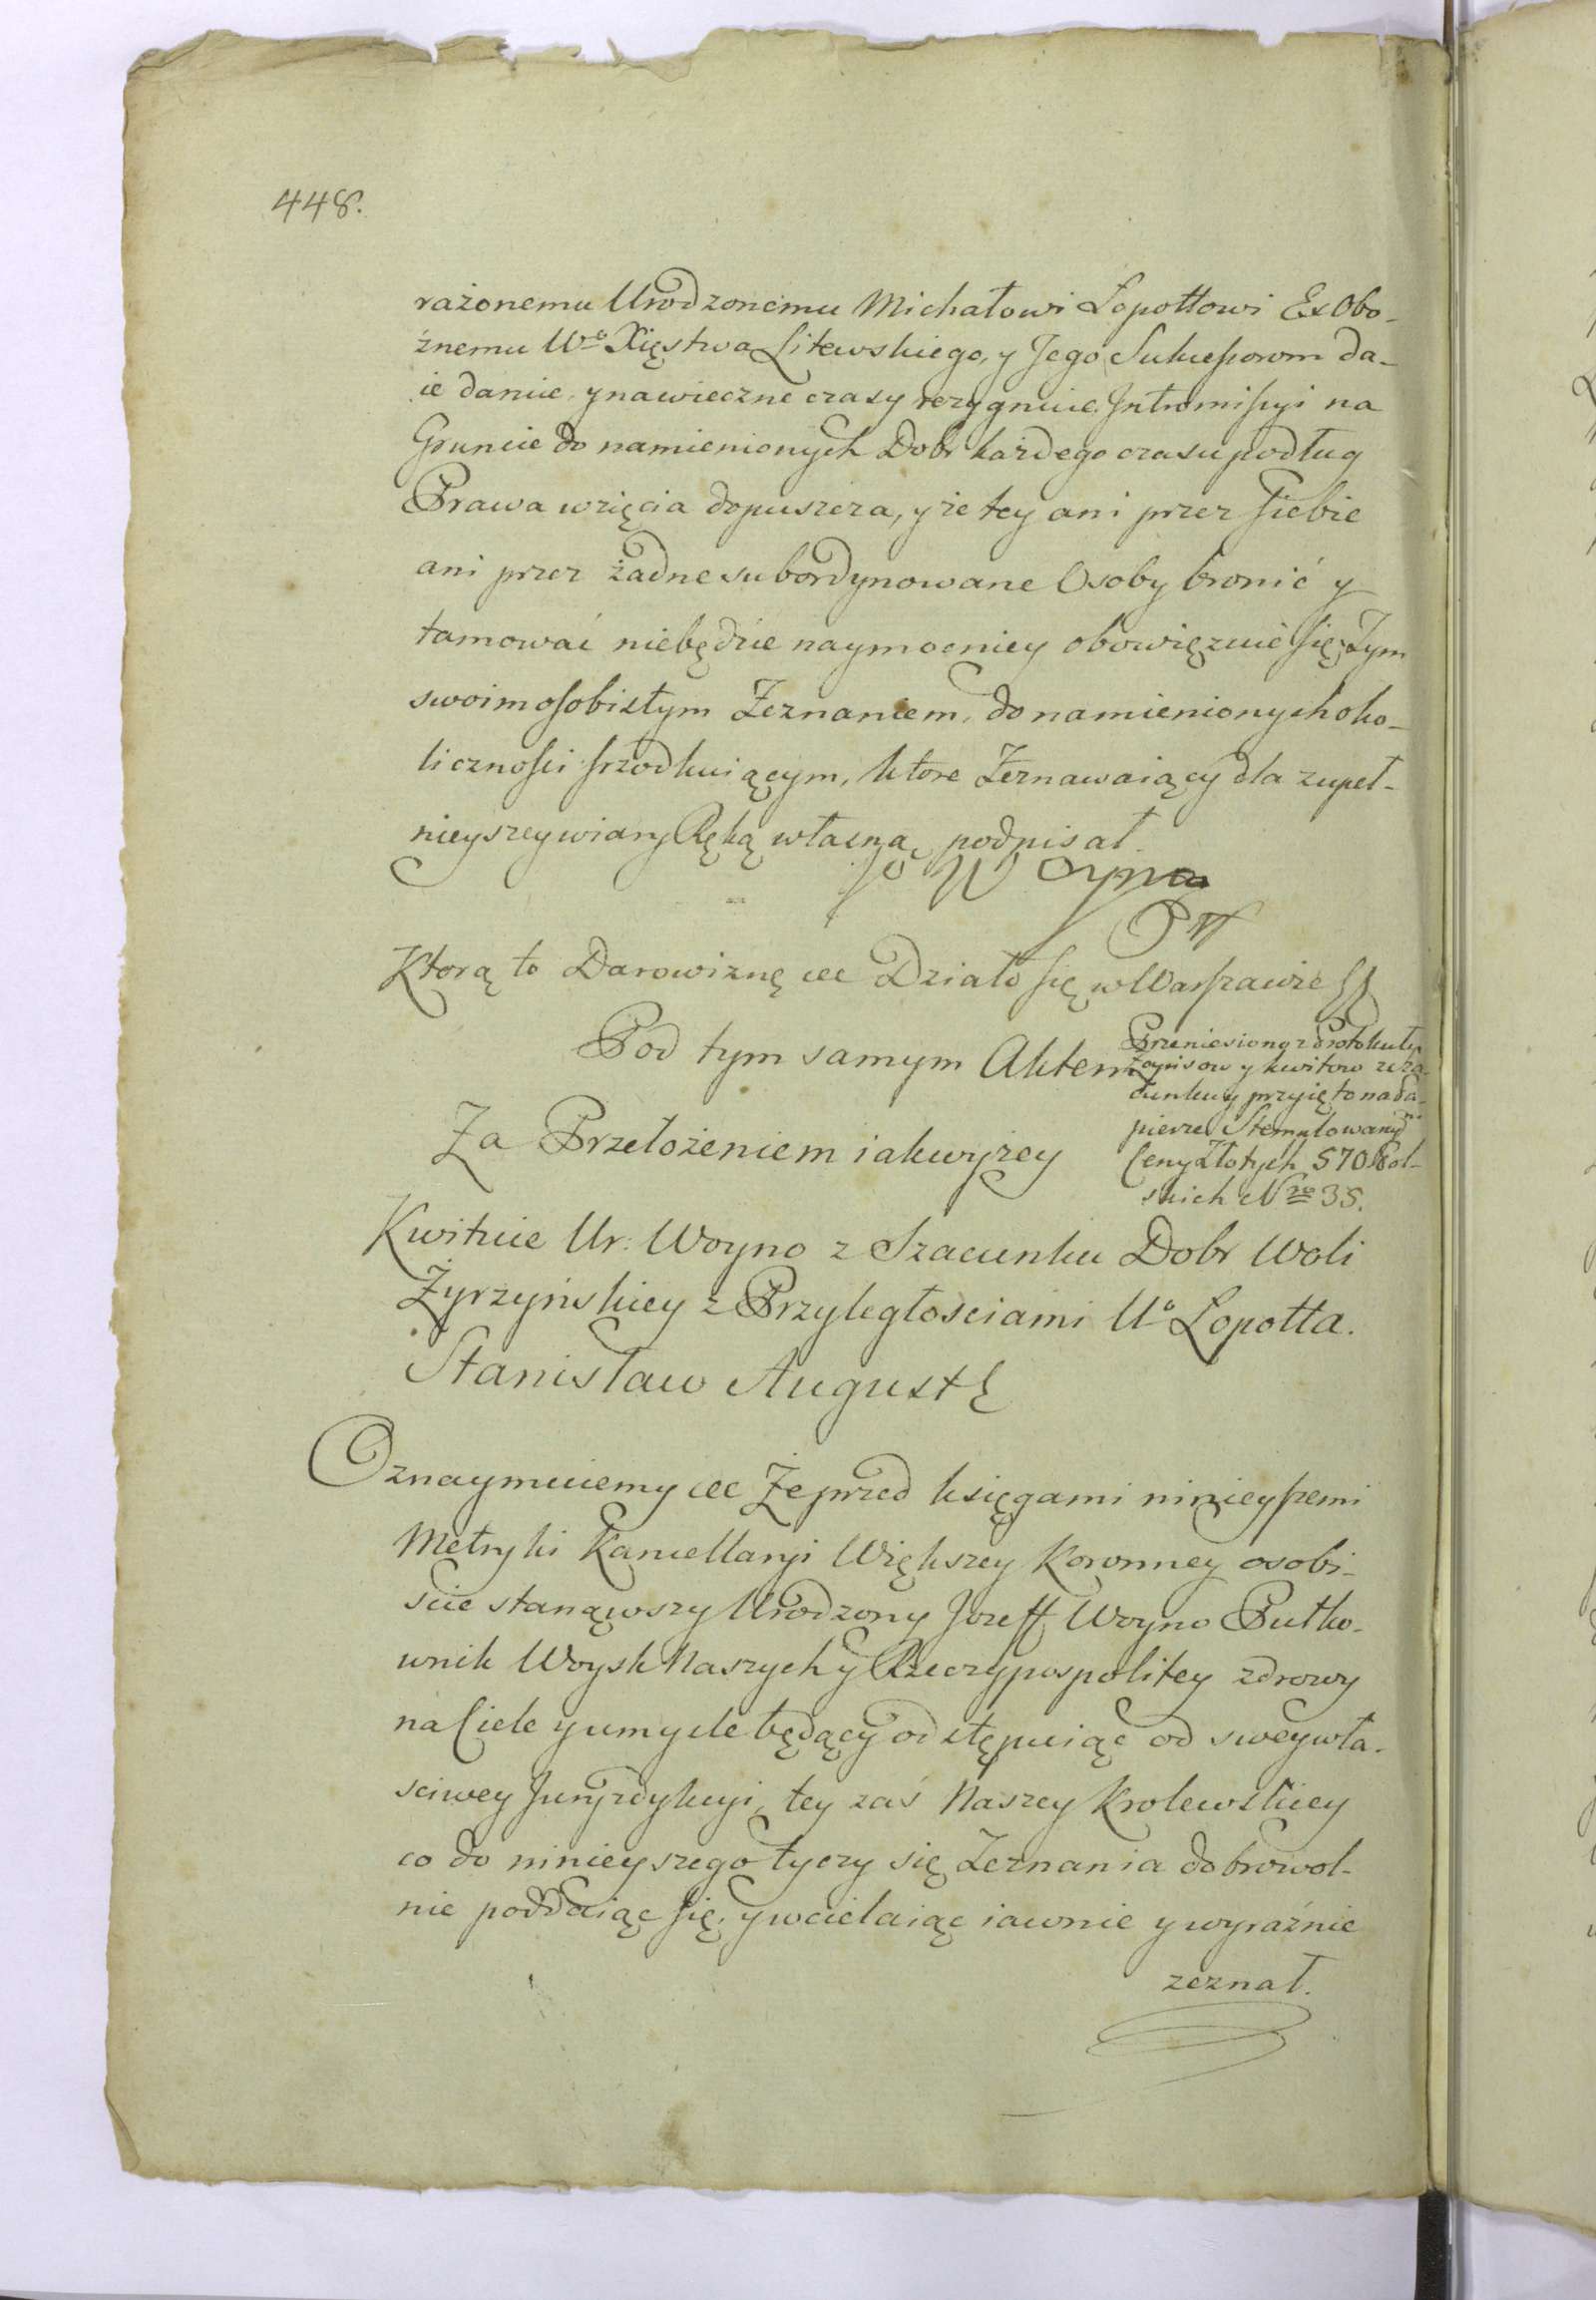 448.
rażonemu Urodzonemu Michałowi Łopottowi Ex Obo-
źnemu Wº Xięstwa Litewskiego, y Jego Sukcessorom da-
ie daruie, y na wieczne czasy rezygnuie. Intromissyi na
Gruncie do namienionych Dobr każdego czasu podług
Prawa wzięcia dopuszcza, y że tey ani przez siebie
ani przez żadne subordynowane Osoby bronić y
tamować niebędzie naymocniey obowięzuie się, Tym
swoim osobistym Zeznaniem, do namienionych oko-
liczności srzodkuiącym, ktore Zeznawaiący dla zupeł-
nieyszey wiary Ręką własną podpisał.
Jo Woyna
Ktorą to Darowiznę etc Działo się w Warszawie
Pod tym samym Aktem
Przeniesiony z Protokułu
Zapisow y kwitow sza-
cunku y przyięto na Pa-
pierze Stemplowanym
Ceny Złotych 570 Pol-
skich Nro 35.
Za Przełożeniem iakwyżey
Kwituie Ur: Woyno z Szacunku Dobr Woli
Żyrzyńskiey z Przyległosciami Uº Łopotta.
Stanisław August
Oznaymuiemy etc Że przed księgami ninieyszemi
Metryki Kancellaryi Większey Koronney osobi-
scie stanąwszy Urodzony Jozeff Woyno Pułko-
wnik Woysk Naszych y Rzeczypospolitey zdrowy
na Ciele y umysle będący odstępuiąc od swey wła-
sciwey Juryzdykcyi, tey zaś Naszey Krolewskiey
co do ninieyszego tyczy się Zeznania dobrowol-
nie poddaiąc się, y wcielaiąc iawnie y wyraźnie
zeznał.